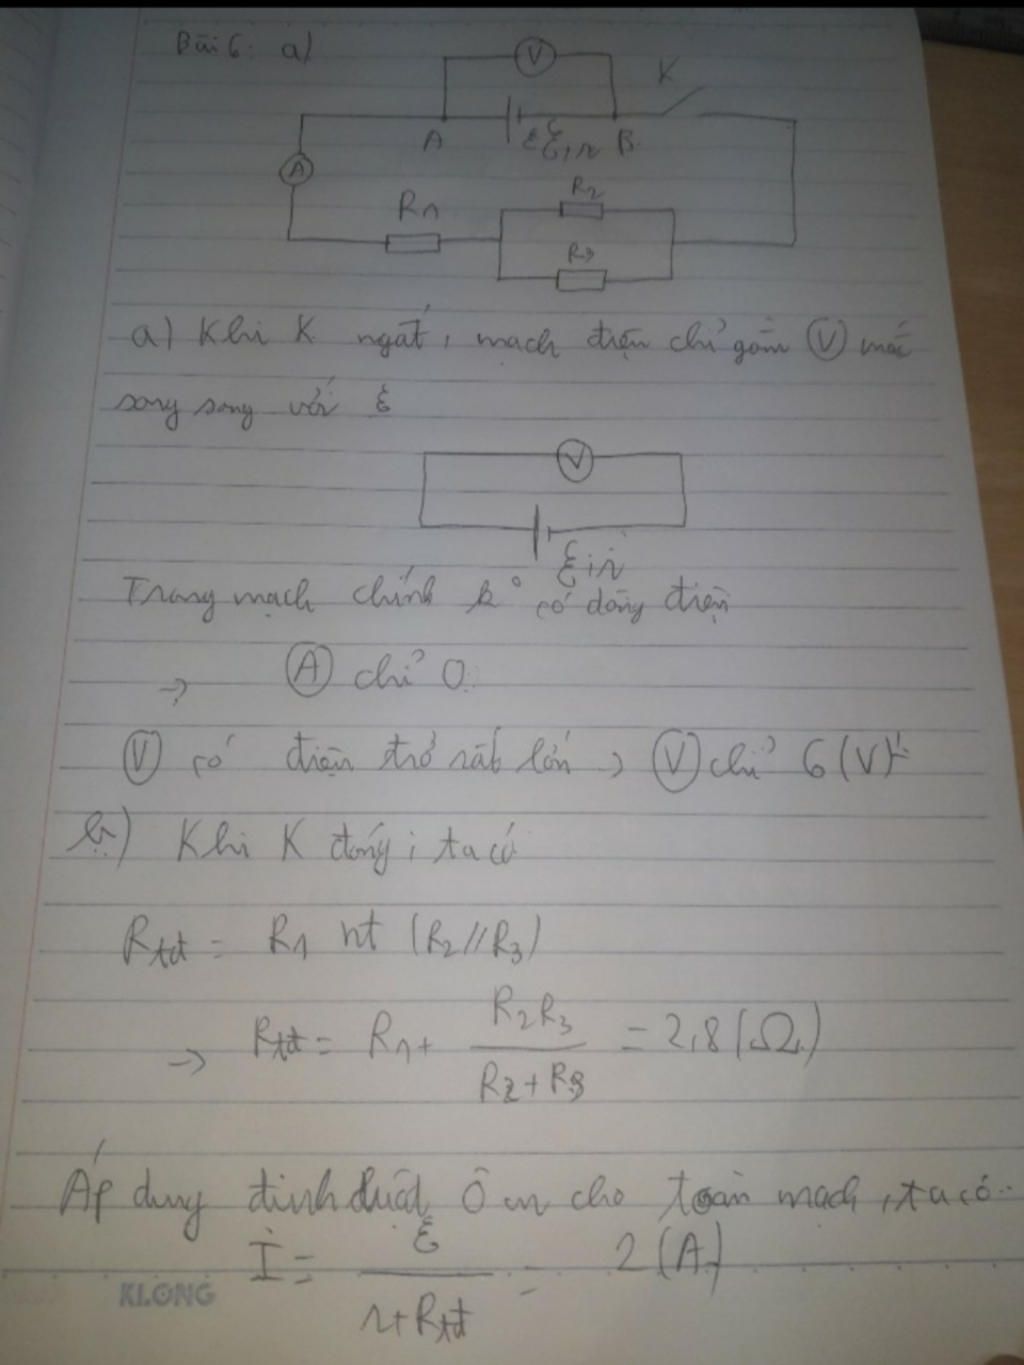 Bài 6: a)
V
K
A
ξ,r
B
A
R1
R2
R3
a) Khi K ngắt, mạch điện chỉ gồm (V) mắc
song song với ξ
V
ξ,r
Trong mạch chính k° có dòng điện
→ (A) chỉ 0.
(V) có điện trở rất lớn → (V) chỉ 6 (V)
b) Khi K đóng, ta có
Rtđ = R1 nt (R2//R3)
→ Rtđ = R1 + R2R3 / R2+R3 = 2,8 (Ω)
Áp dụng định luật Ôm cho toàn mạch, ta có
I = ξ / r+Rtđ = 2 (A)
KLONG